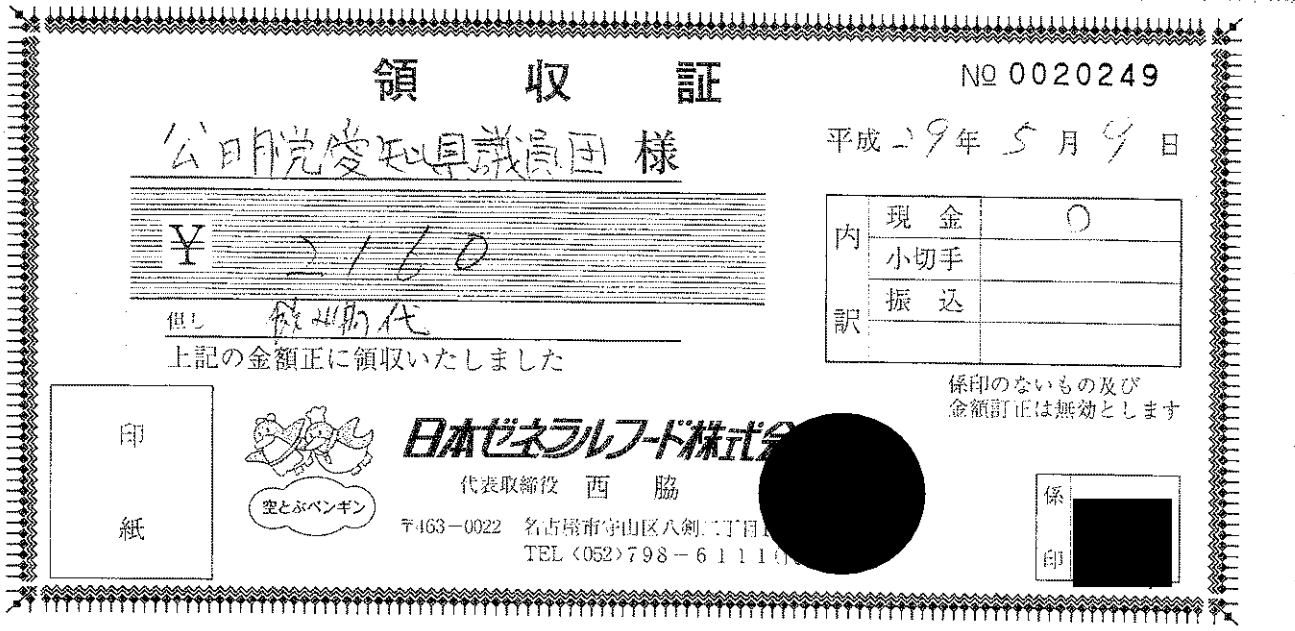 領収証
№ 0020249
公明党愛知県議員団 様
平成 29年 5月 9日
¥ 2160
但し 代
上記の金額正に領収いたしました
内訳
現金 0
小切手
振込
係印のないもの及び
金額訂正は無効とします
印紙
空とぶペンギン
日本ゼネラルフード株式会
代表取締役 西脇
〒463-0022 名古屋市守山区八剣二丁目1
TEL〈052〉798-6111
係印